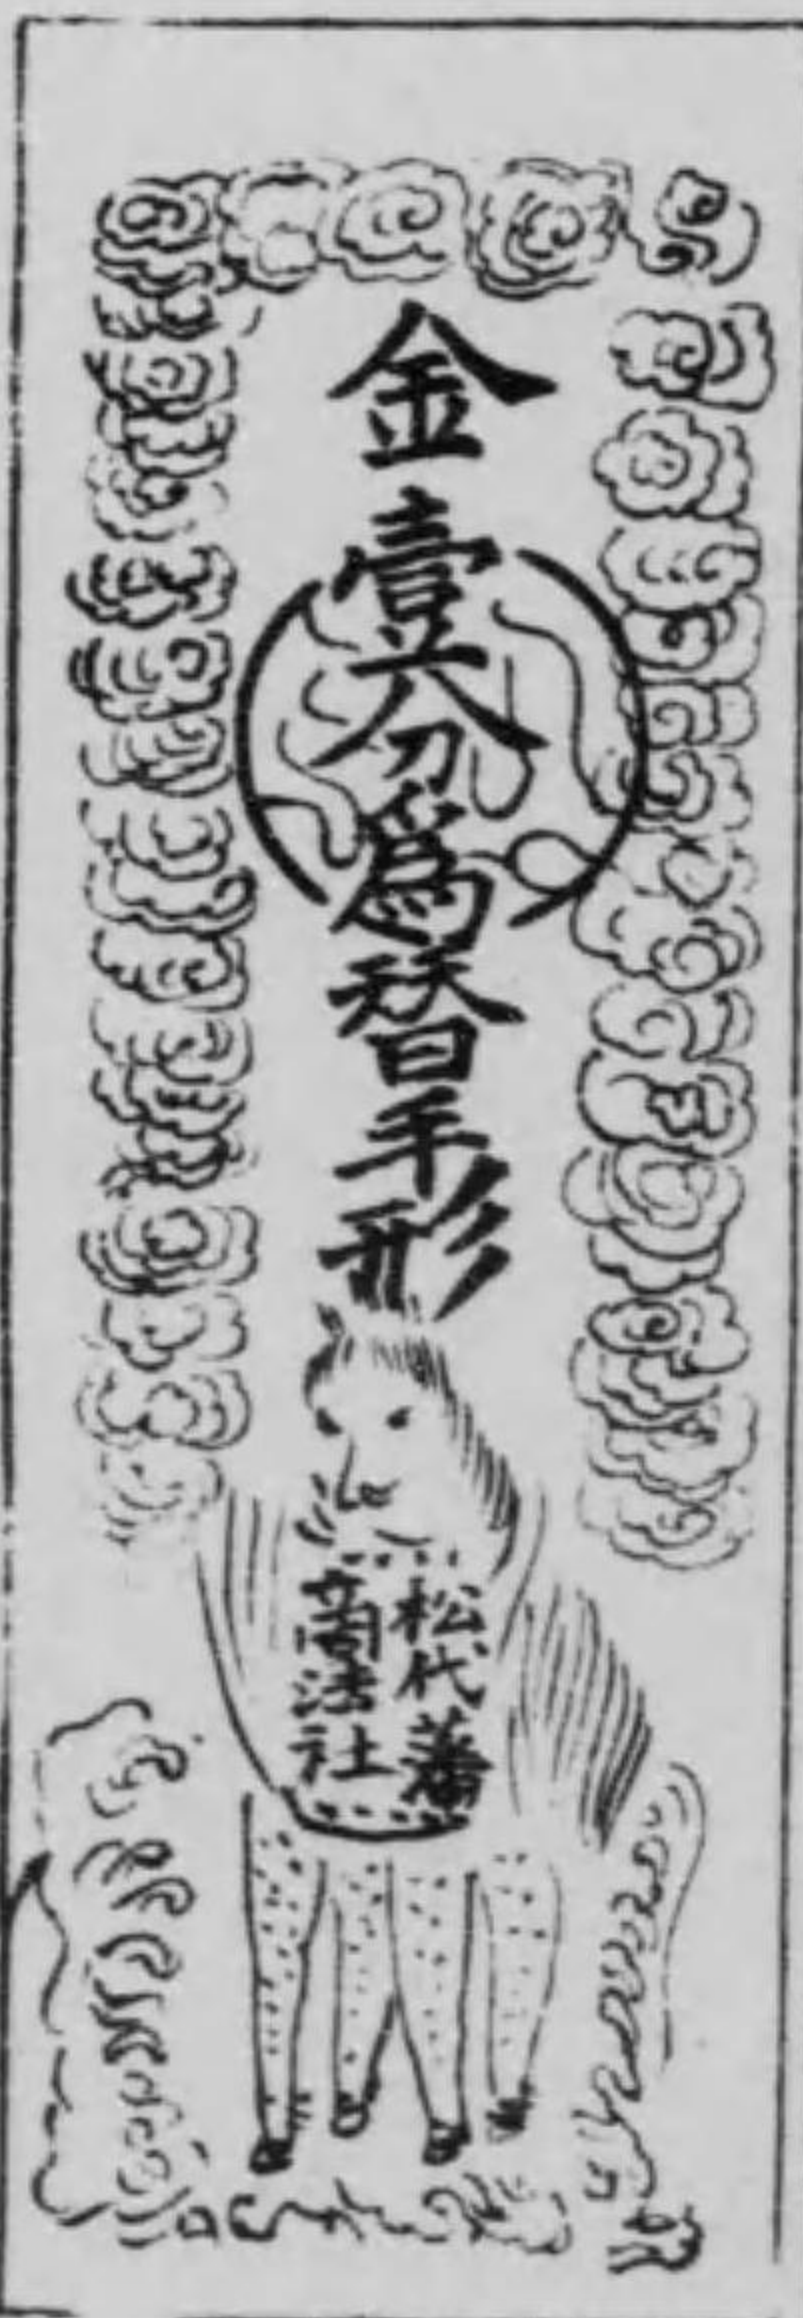 金壹分為替手形
松代藩
商法社